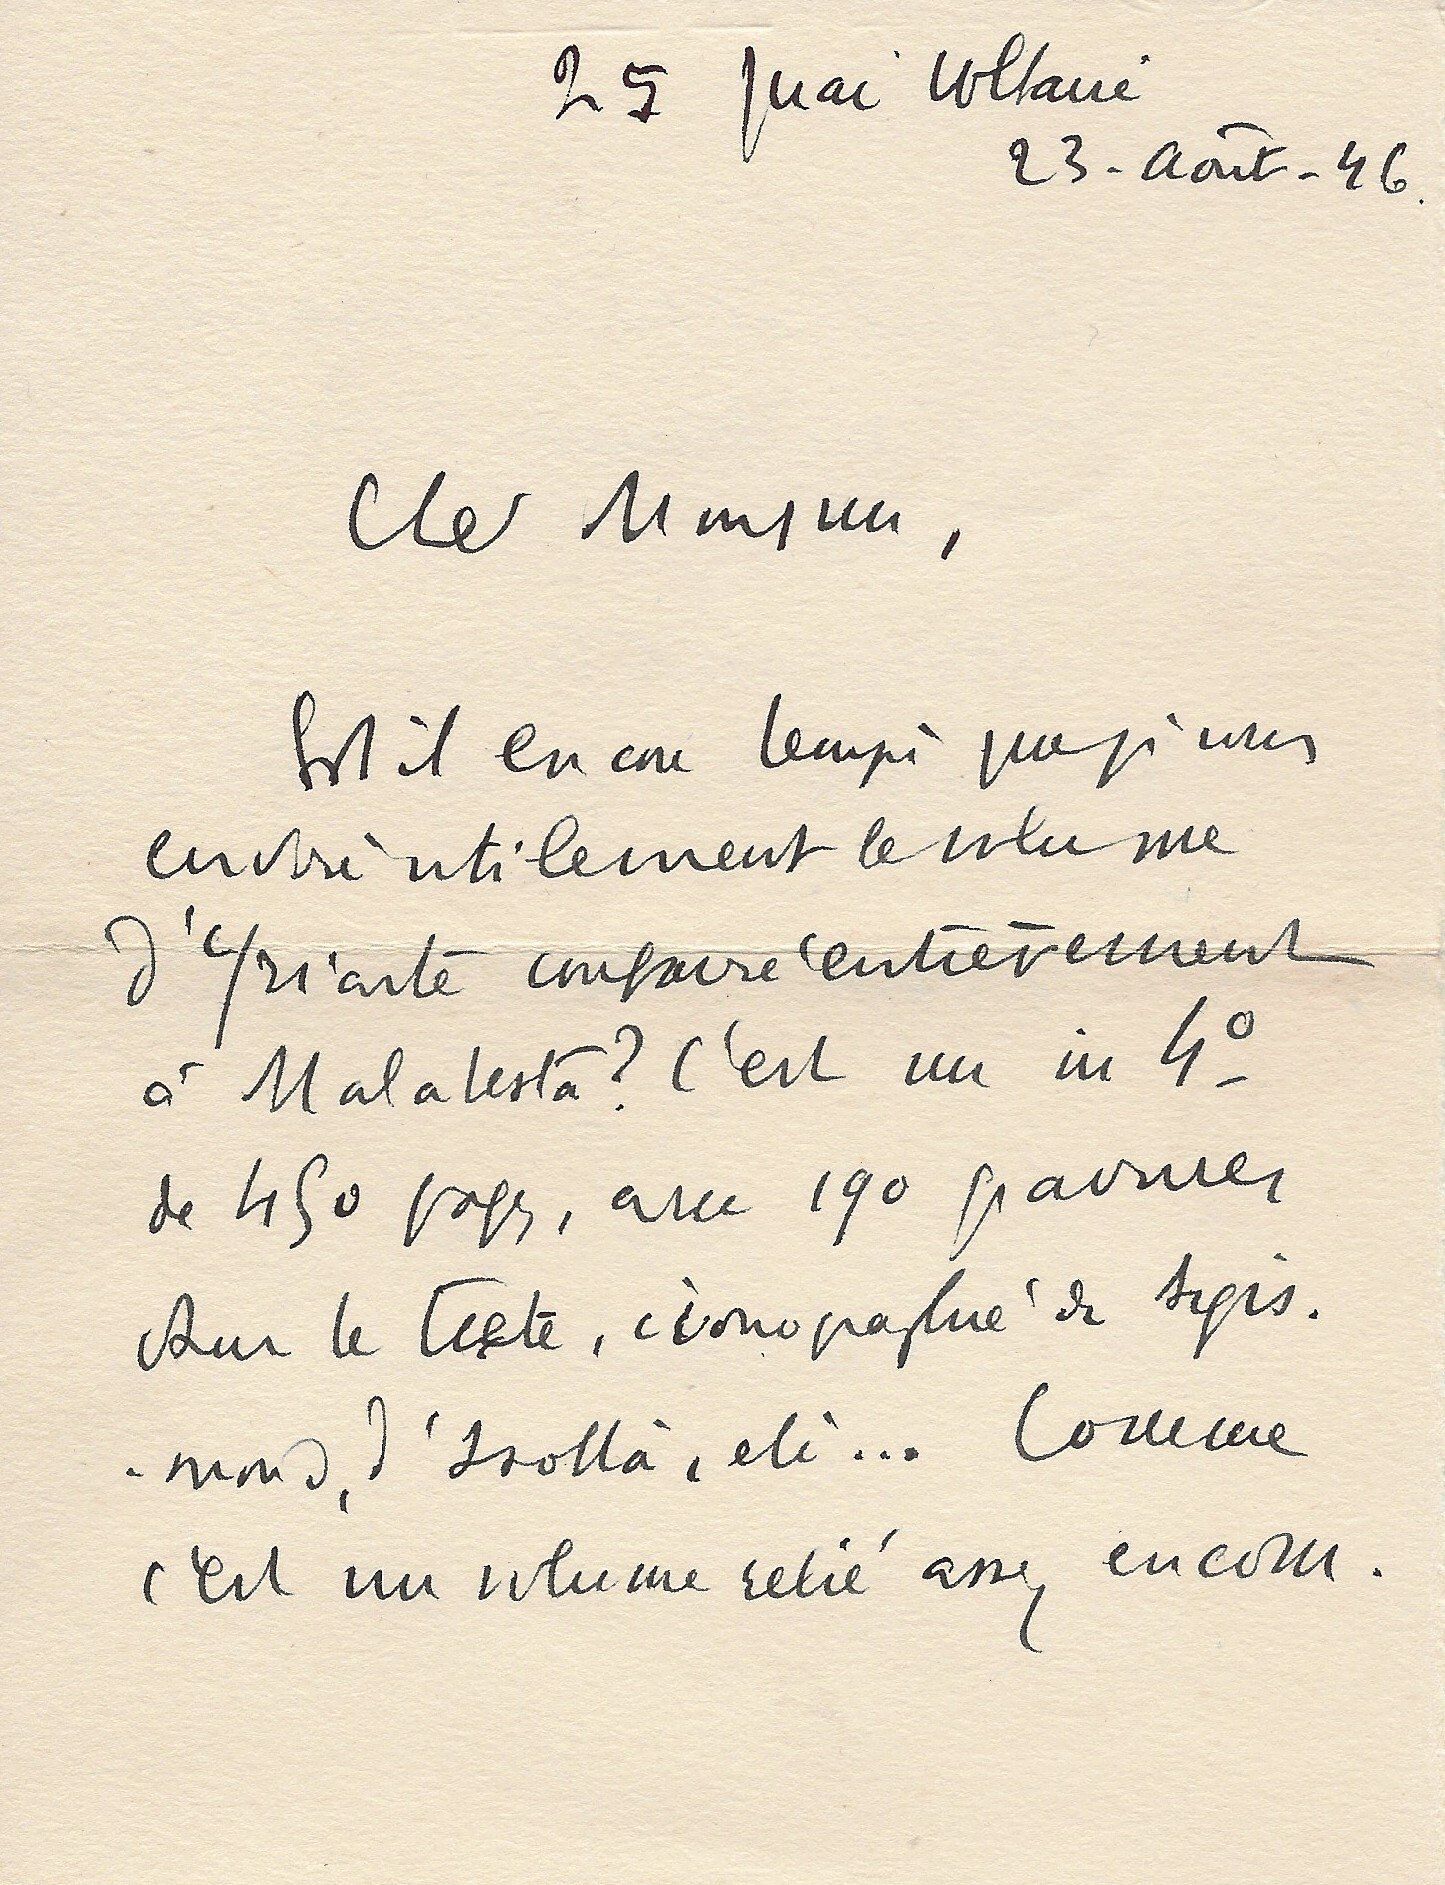 25 quai Voltaire
23 - Août - 46.
Cher Monsieur,
Est il encore temps que je vous
envoie utilement le volume
d'Yriarte consacré entièrement
à Malatesta? C'est un in 4°
de 450 pages, avec 190 gravures
dans le texte, iconographie de Sigis.
-mond, d'Isotta, etc...  Comme
c'est un volume relié assez encom.